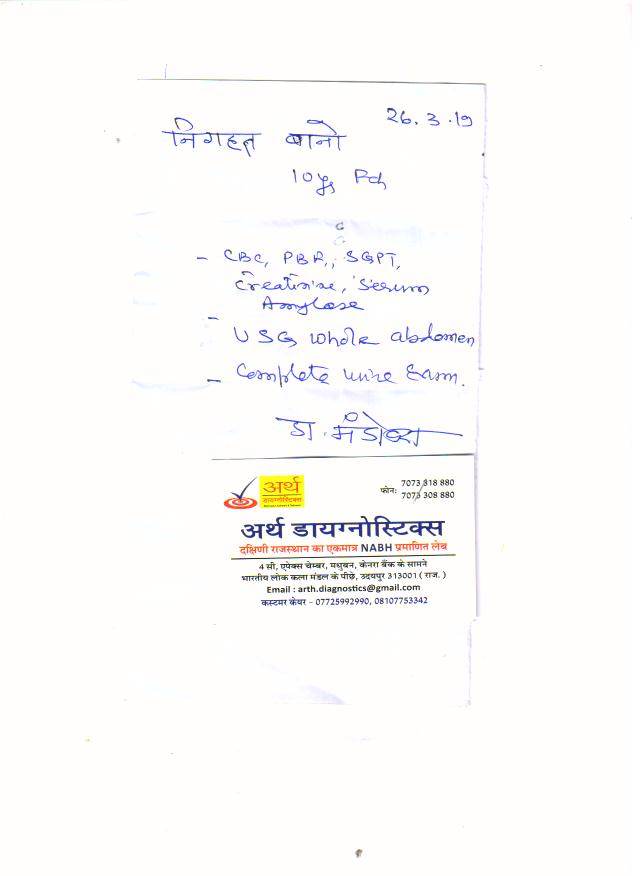 26.3.19
निगहत बानो
10 yrs Fch
- CBC, PBF, SGPT,
Creatinine, Serum
Amylase
- USG whole abdomen
- Complete urine Exam.
डा.
अर्थ
डायग्नोस्टिक्स
फोन: 7073 818 880
7073 308 880
अर्थ डायग्नोस्टिक्स
दक्षिणी राजस्थान का एकमात्र NABH प्रमाणित लेब
4 सी, एपेक्स चेम्बर, मधुबन, केनरा बैंक के सामने
भारतीय लोक कला मंडल के पीछे, उदयपुर 313001 ( राज. )
Email : arth.diagnostics@gmail.com
कस्टमर केयर - 07725992990, 08107753342